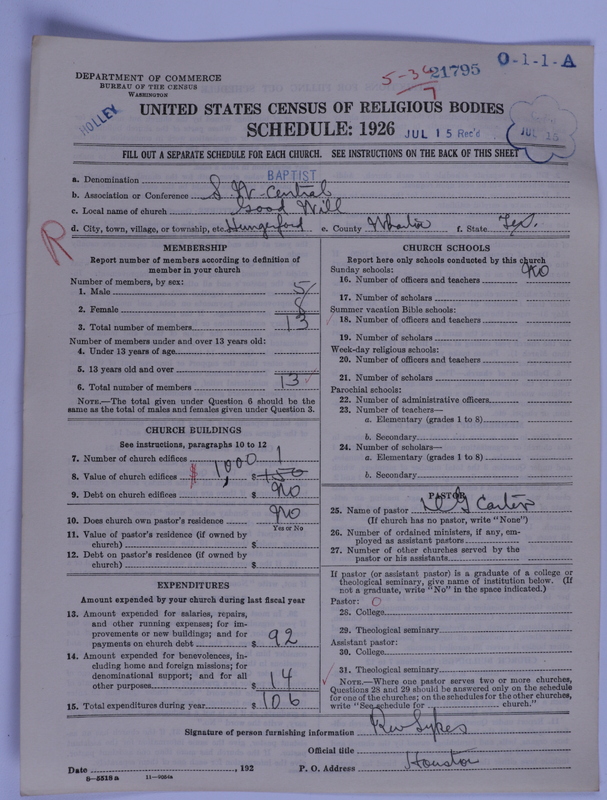 DEPARTMENT OF COMMERCE
BUREAU OF THE CENSUS
WASHINGTON
5-34 21795
7
O-1-1-A
HOLLEY
UNITED STATES CENSUS OF RELIGIOUS BODIES
SCHEDULE: 1926
JUL 15 Rec'd
JUL 15
FILL OUT A SEPARATE SCHEDULE FOR EACH CHURCH. SEE INSTRUCTIONS ON THE BACK OF THIS SHEET
a. Denomination BAPTIST
b. Association or Conference S W-Central
c. Local name of church Good Will
d. City, town, village, or township, etc. Hungerford e. County Wharton f. State Tex.
R
MEMBERSHIP
Report number of members according to definition of
member in your church
Number of members, by sex:
1. Male 5
2. Female 8
3. Total number of members 13
Number of members under and over 13 years old:
4. Under 13 years of age
5. 13 years old and over
6. Total number of members 13
NOTE.—The total given under Question 6 should be the
same as the total of males and females given under Question 3.
CHURCH BUILDINGS
See instructions, paragraphs 10 to 12
7. Number of church edifices 1
8. Value of church edifices $ 1,000 $ 150
9. Debt on church edifices $ No
10. Does church own pastor's residence No
Yes or No
11. Value of pastor's residence (if owned by
church) $
12. Debt on pastor's residence (if owned by
church) $
EXPENDITURES
Amount expended by your church during last fiscal year
13. Amount expended for salaries, repairs,
and other running expenses; for im-
provements or new buildings; and for
payments on church debt $ 92
14. Amount expended for benevolences, in-
cluding home and foreign missions; for
denominational support; and for all
other purposes $ 14
15. Total expenditures during year $ 106
CHURCH SCHOOLS
Report here only schools conducted by this church
Sunday schools: No
16. Number of officers and teachers
17. Number of scholars
Summer vacation Bible schools:
18. Number of officers and teachers
19. Number of scholars
Week-day religious schools:
20. Number of officers and teachers
21. Number of scholars
Parochial schools:
22. Number of administrative officers
23. Number of teachers—
a. Elementary (grades 1 to 8)
b. Secondary
24. Number of scholars—
a. Elementary (grades 1 to 8)
b. Secondary
PASTOR
25. Name of pastor Carter
(If church has no pastor, write "None")
26. Number of ordained ministers, if any, em-
ployed as assistant pastors
27. Number of other churches served by the
pastor or his assistants
If pastor (or assistant pastor) is a graduate of a college or
theological seminary, give name of institution below. (If
not a graduate, write "No" in the space indicated.)
Pastor: O
28. College
29. Theological seminary
Assistant pastor:
30. College
31. Theological seminary
NOTE.—Where one pastor serves two or more churches,
Questions 28 and 29 should be answered only on the schedule
for one of the churches; on the schedules for the other churches,
write "See schedule for church."
Signature of person furnishing information Rev Sykes
Official title
Date , 192 P. O. Address Houston
8—5518 a 11—9034a